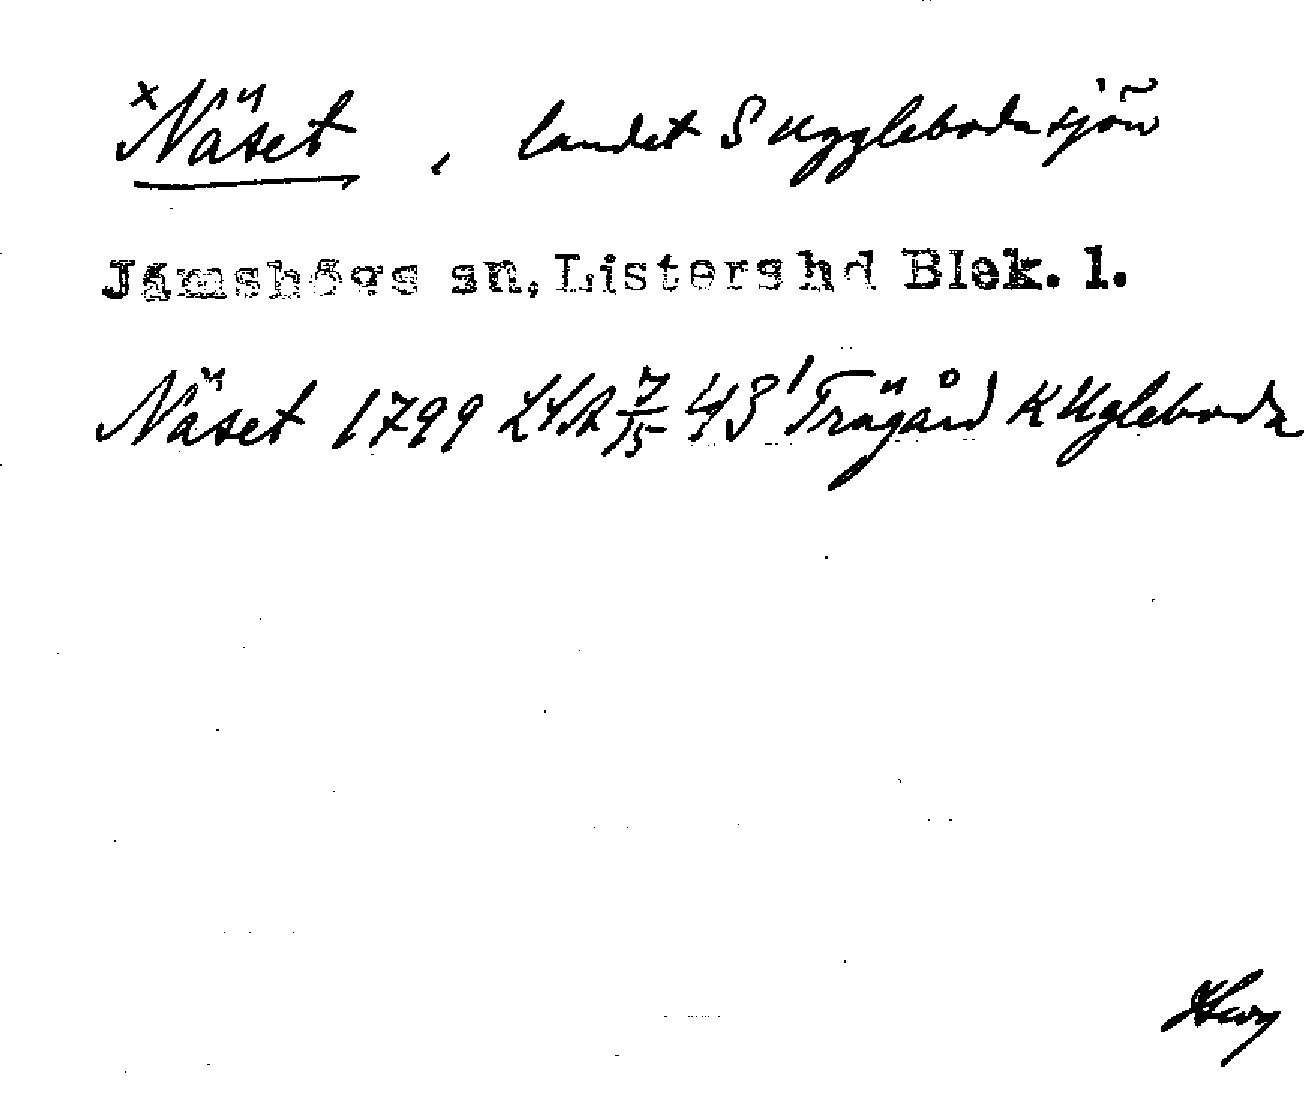 ×Näset, landet S Uggleboda sjön
Jämshögs sn, Listers hd Blek. l.
Näset 1799 LSA 7/15 43 Trägård K Ugleboda